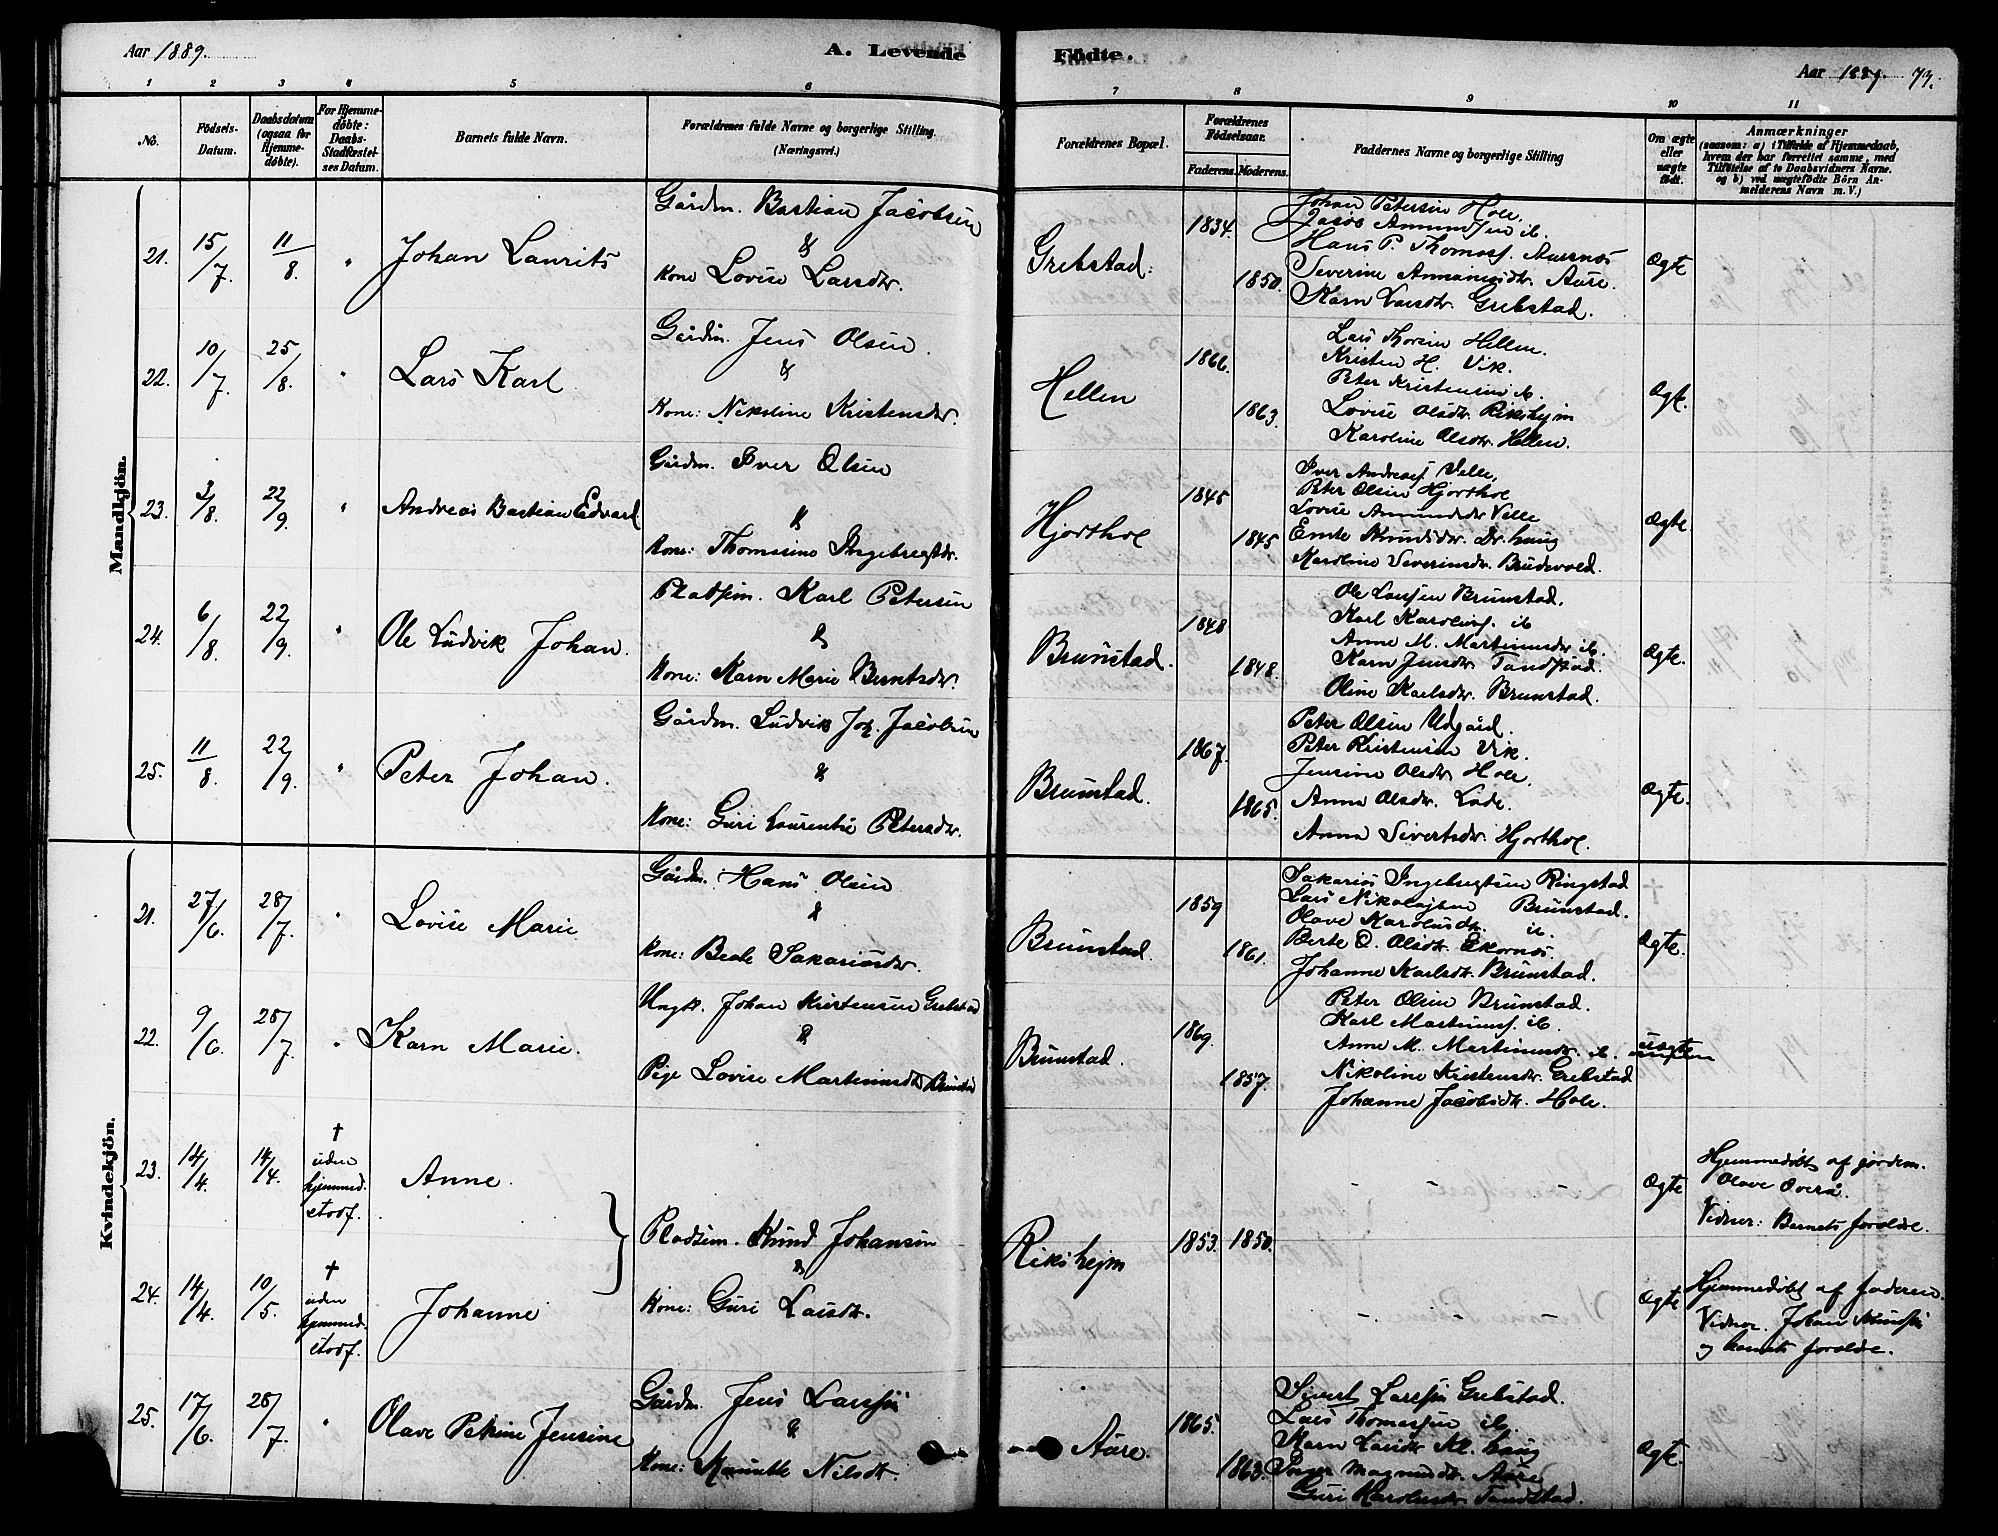 Aar 1889.
A. Levende
Fødte.
Aar 1889. 73.
1 2 3 4 5 6 7 8 9 10 11
No.
Fødsels-Datum.
Daabsdatum (ogsaa for Hjemmedøbte).
For Hjemmedøbte: Daabs-Stadfæstelses Datum.
Barnets fulde Navn.
Forældrenes fulde Navne og borgerlige Stilling. (Næringsvei.)
Forældrenes Bopæl.
Forældrenes Fødselsaar.
Faderens. Moderens.
Faddernes Navne og borgerlige Stilling
Om ægte eller uægte født.
Anmærkninger
(saasom: a) i Tilfælde af Hjemmedaab, hvem der har forrettet samme, med Tilføielse af to Daabsvidners Navne. og b) ved uægtefødte Børn Anmelderens Navn m. V.)
Mandkjön.
21. 15/7 11/8. " Johan Laurits
Gårdm. Bastian Jacobsen
&
Kone Lovise Larsdtr.
Grebstad. 1834. 1850.
Johan Petersen Hole.
Jacob Amundsen ib.
Hans P. Thomass. Aursnes
Severine Aure.
Karn Larsdtr. Grebstad.
Ægte
22. 10/7 25/8. " Lars Karl
Gårdm. Jens Olsen.
&
Kone: Nikoline Kristensdtr.
Hellen 1866. 1863.
Lars Hellen.
Kristen H. Vik.
Peter Kristensen ib.
Lovise Olsdtr. Rikshejm
Karoline Olsdtr. Hellen.
Ægt.
23. 3/8. 22/9. " Andreas Bastian Edvard
Gårdm. Iver Olsen
&
Kone: Thomasine Ingebregtdr.
Hjorthol 1845 1845
Iver Andreass. Velle,
Peter Olsen Hjorthol
Lovise Amundsdtr Velle
Karoline Severinsdr. Brudevold.
Ægte
24. 6/8. 22/9. " Ole Ludvik Johan.
Pladsm. Karl Petersen
&
Kone: Karn Marie Berntsdtr.
Brunstad. 1848 1848.
Ole Larssen Brunstad.
Karl Karoliuss. ib
Anne M. Martinusdr ib.
Karn Jensdtr. Tandstad.
Oline Karlsdtr. Brunstad.
Ægte.
25. 11/8. 22/9. " Peter Johan.
Gårdm. Ludvik Joh. Jacobsen
&
Kone: Guri Laurentse Petersdtr.
Brunstad. 1867. 1865.
Peter Olsen Udgård.
Peter Kristensen Vik.
Jensine Olsdtr. Hole.
Anna Olsdtr. Lade.
Anna Sivertsdtr. Hjorthol.
Ægte.
Kvindekjön.
21. 27/6. 28/7. " Lovise Marie
Gårdm. Hans Olsen
&
Kone: Beate Sakariasdtr.
Brunstad. 1859 1861.
Sakarias Ingebregtsen Ringstad
Lars Nikolajsen Brunstad.
Olave Karolusdt. ib.
Berte O. Olsdt. Ekornes.
Johanne Karlsdt. Brunstad.
Ægte.
22. 9/6. 28/7. " Karn Marie.
Ungk. Johan Kristensen Grebstad
&
Pige Lovise Martinusdt Brunstad
Brunstad. 1869. 1857.
Peter Olsen Brunstad.
Karl Martinuss. ib.
Anne M. Martinusdr. ib.
Nikoline Kristensdr. Grebstad
Johanne Jacobsdt. Hole.
uægte
23. 14/4. 14/4. † uden hjemmed. stadf. Anne.
Ægte
Hjemmedöbt af jordem. Olave Överå.
Vidner: Barnets forældre.
Pladsm. Knud Johansen
&
Kone: Guri Larsdt.
Rikshejm 1853. 1850.
24. 14/4. 10/5. † uden hjemmed. stadf. Johanne
Ægte
Hjemmedöbt af faderen.
Vidner. Johan Knudsen
og barnets forældre.
25. 17/6. 28/7. " Olave Petrine Jensine
Gårdm. Jens Larssen
&
Kone: Nilsdt.
Aure. 1865. 1863.
Sivert Larssen Grebstad.
Lars Thomassen ib.
Karn Larsdt Kl. haug
Inger Magnusdt. Aure
Guri Karolusdr Tandstad.
Ægt.